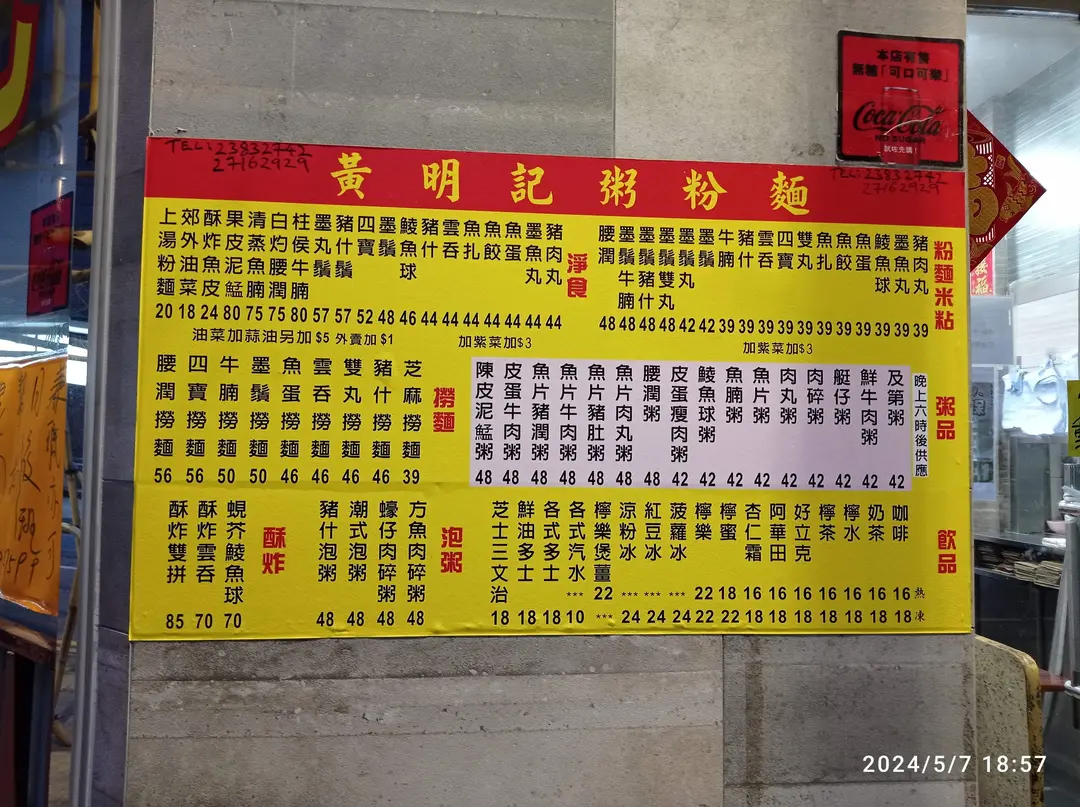 本店有售
無糖「可口可樂」
Coca-Cola
NO SUGAR
試咗先講!
TEL:23832742
27162929
TEL:23832742
27162929
黃明記粥粉麵
粉麵米粘
豬肉丸 39
墨魚丸 39
鯪魚球 39
魚蛋 39
魚餃 39
魚扎 39
雙丸 39
四寶 39
雲吞 39
豬什 39
牛腩 39
墨鬚 42
墨鬚丸 42
墨鬚雙丸 48
墨鬚豬什 48
墨鬚牛腩 48
腰潤 48
加紫菜加$3
淨食
豬肉丸 44
墨魚丸 44
魚蛋 44
魚餃 44
魚扎 44
雲吞 44
豬什 44
鯪魚球 46
墨鬚 48
四寶 52
豬什鬚 57
墨丸鬚 57
柱侯牛腩 80
白灼腰潤 75
清蒸魚腩 75
果皮泥鯭 80
酥炸魚皮 24
郊外油菜 18
上湯粉麵 20
加紫菜加$3
油菜加蒜油另加$5 外賣加$1
粥品
晚上六時後供應
及第粥 42
鮮牛肉粥 42
艇仔粥 42
肉碎粥 42
肉丸粥 42
魚片粥 42
魚腩粥 42
鯪魚球粥 42
皮蛋瘦肉粥 42
腰潤粥 48
魚片肉丸粥 48
魚片豬肚粥 48
魚片牛肉粥 48
魚片豬潤粥 48
皮蛋牛肉粥 48
陳皮泥鯭粥 48
撈麵
芝麻撈麵 39
豬什撈麵 46
雙丸撈麵 46
雲吞撈麵 46
魚蛋撈麵 46
墨鬚撈麵 50
牛腩撈麵 50
四寶撈麵 56
腰潤撈麵 56
飲品
熱 凍
咖啡 16 18
奶茶 16 18
檸水 16 18
檸茶 16 18
好立克 16 18
阿華田 16 18
杏仁霜 16 18
檸蜜 18 22
檸樂 22 22
菠蘿冰 *** 24
紅豆冰 *** 24
涼粉冰 *** 24
檸樂煲薑 22 ***
各式汽水 *** 10
各式多士 18
鮮油多士 18
芝士三文治 18
泡粥
方魚肉碎粥 48
蠔仔肉碎粥 48
潮式泡粥 48
豬什泡粥 48
酥炸
蜆芥鯪魚球 70
酥炸雲吞 70
酥炸雙拼 85
2024/5/7 18:57